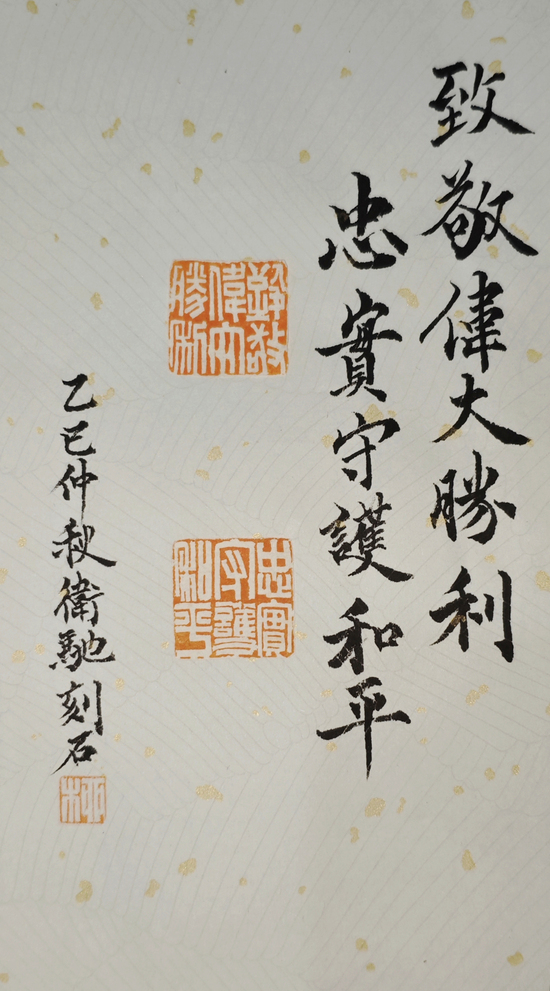 致敬偉大勝利
忠實守護和平
致敬偉大勝利
忠實守護和平
乙巳仲秋衛馳刻石